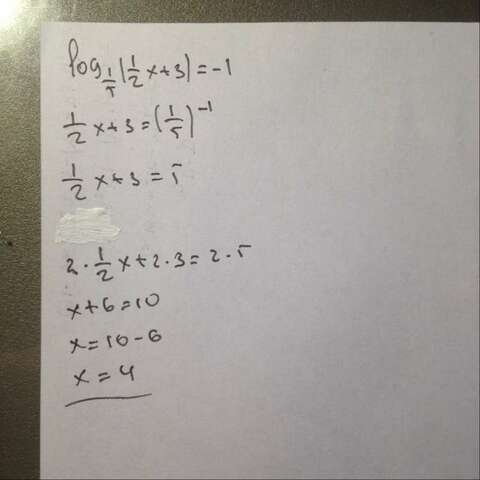 log_{1/5}(1/2 x+3)=-1
1/2 x+3=(1/5)^{-1}
1/2 x+3=5
2·1/2 x+2·3=2·5
x+6=10
x=10-6
x=4